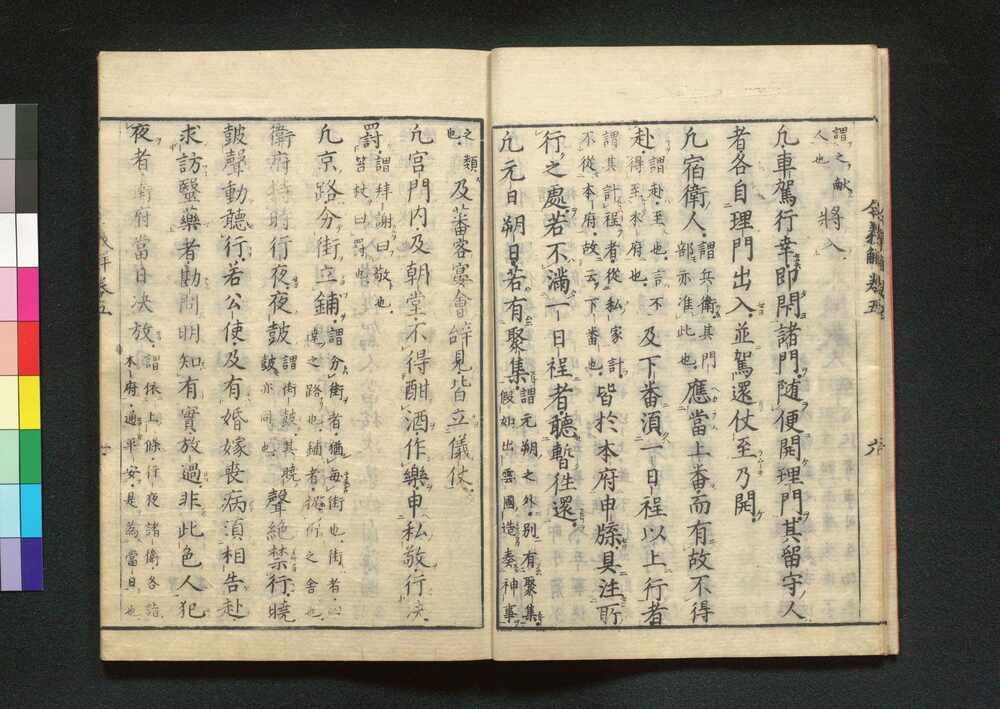 謂之獻人也將入
凡車駕行幸即閇諸門随便開理門其留守人
者各自理門出入並駕還仗至乃開
凡宿衛人謂兵衛其門部亦准此也應當上番而有故不得
赴謂赴至也言不得至本府也及下番須一日程以上行者
謂其計程者從私家計不從本府故云下番也皆於本府申牒具注所
行之處若不滿一日程者聽暫徃還
凡元日朔日若有聚集謂元朔之外別有聚集假如出雲國造奏神事
之類也及蕃客宴會辞見皆立儀仗
凡宮門内及朝堂不得酣酒作樂申私敬行决
罰謂拜謝曰敬也笞杖曰罰也
凡京路分街立鋪謂分街者猶毎街也街者
之路也鋪者之舎也
衛府持時行夜夜皷謂衛皷其曉皷亦同也聲絶禁行曉
皷聲動聽行若公使及有婚嫁喪病須相告赴
求訪醫藥者勘問明知有實放過非此色人犯
夜者衛府當日决放謂依上條行夜諸衛各詣本府通平安是為當日也
令義解 卷五
義解卷五